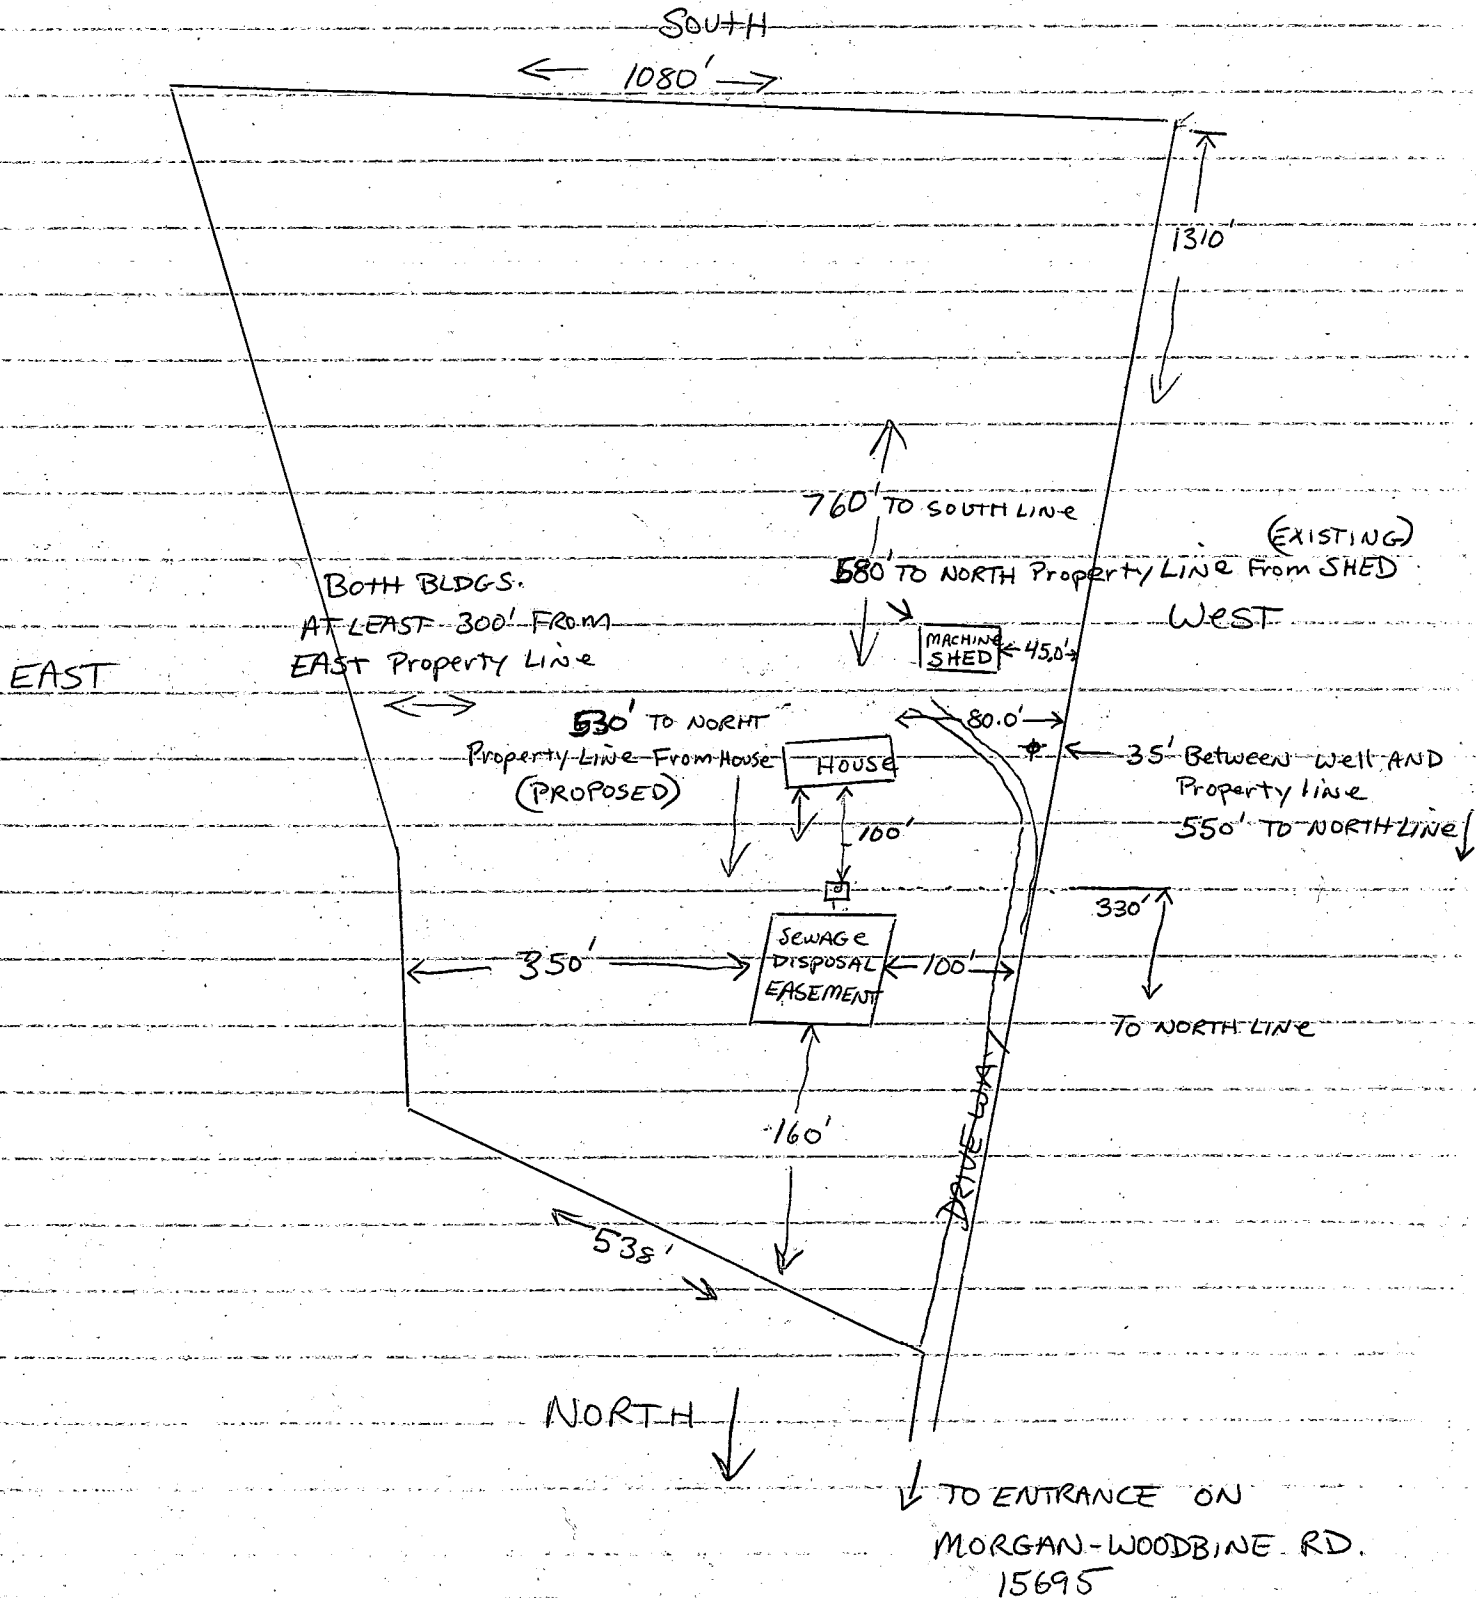 SOUTH
1080'
1310'
760' TO SOUTH LINE
(EXISTING)
580' TO NORTH Property LINE From SHED
WEST
BOTH BLDGS.
AT LEAST 300' FROM
EAST Property Line
EAST
MACHINE
SHED
45.0'
530' TO NORHT
Property Line From House
(PROPOSED)
80.0'
HOUSE
35' Between well AND
Property line
550' TO NORTH LINE
100'
330'
TO NORTH LINE
SEWAGE
DISPOSAL
EASEMENT
350'
100'
160'
DRIVEWAY
538'
NORTH
TO ENTRANCE ON
MORGAN-WOODBINE RD.
15695